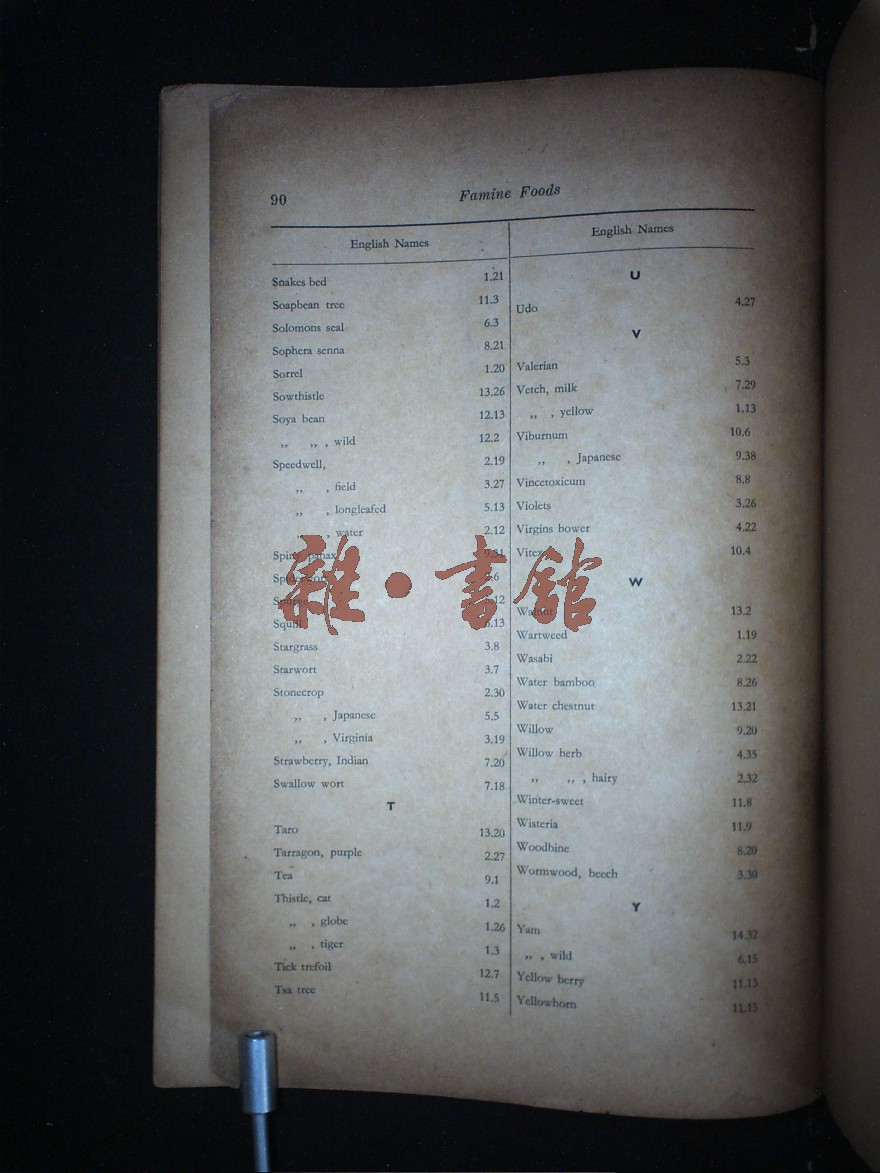 90
Famine Foods
English Names
Snakes bed 1.21
Soapbean tree 11.3
Solomons seal 6.3
Sophera senna 8.21
Sorrel 1.20
Sowthistle 13.26
Soya bean 12.13
,, ,, , wild 12.2
Speedwell, 2.19
,, , field 3.27
,, , longleafed 5.13
, water 2.12
Spiny panax
Squill
Stargrass 3.8
Starwort 3.7
Stonecrop 2.30
,, , Japanese 5.5
,, , Virginia 3.19
Strawberry, Indian 7.20
Swallow wort 7.18
T
Taro 13.20
Tarragon, purple 2.27
Tea 9.1
Thistle, cat 1.2
,, , globe 1.26
,, , tiger 1.3
Tick trefoil 12.7
Tsa tree 11.5
English Names
U
Udo 4.27
V
Valerian 5.3
Vetch, milk 7.29
,, , yellow 1.13
Viburnum 10.6
,, , Japanese 9.38
Vincetoxicum 8.8
Violets 3.26
Virgins bower 4.22
Vitex 10.4
W
Walnut 13.2
Wartweed 1.19
Wasabi 2.22
Water bamboo 8.26
Water chestnut 13.21
Willow 9.20
Willow herb 4.35
,, ,, , hairy 2.32
Winter-sweet 11.8
Wisteria 11.9
Woodbine 8.20
Wormwood, beech 3.30
Y
Yam 14.32
,, , wild 6.15
Yellow berry 11.13
Yellowhorn 11.15
雜·書館